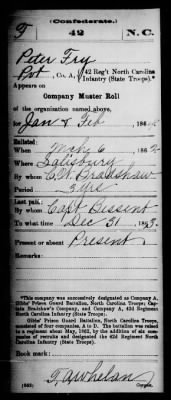 (Confederate.)
F 42 N.C.
Peter Fry
Pvt, Co. A, 42 Reg't North Carolina
Infantry (State Troops).*
Appears on
Company Muster Roll
of the organization named above,
for Jan & Feb, 1864.
Enlisted:
When Mch 6, 1862.
Where Salisbury
By whom C.W. Bradshaw
Period 3 yrs
Last paid:
By whom Capt Bessent
To what time Dec 31, 1863.
Present or absent Present
Remarks:
*This company was successively designated as Company A,
Gibbs' Prison Guard Battalion, North Carolina Troops; Cap-
tain Bradshaw's Company, and Company A, 42d Regiment
North Carolina Infantry (State Troops).
Gibbs' Prison Guard Battalion, North Carolina Troops, con-
sisted of four companies, A to D. The battalion was raised to
a regiment about May, 1862, by the addition of six com-
panies of recruits and designated the 42d Regiment North
Carolina Infantry (State Troops).
Book mark:
T. A. Whelan
(642) Copyist.